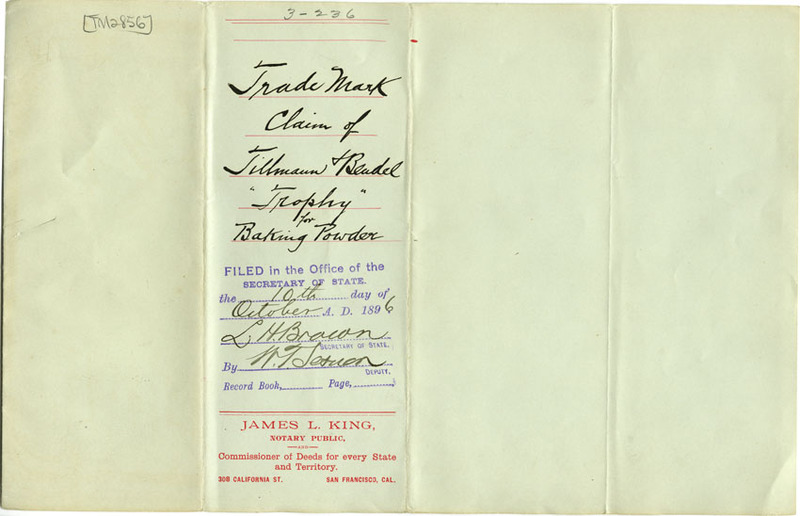 [TM2856]
3-236
Trade Mark
Claim of
Tillmann & Bendel
"Trophy"
for
Baking Powder
FILED in the Office of the
SECRETARY OF STATE.
the 10th day of
October A. D. 1896
L. H. Brown
SECRETARY OF STATE.
By W. T.
DEPUTY.
Record Book, Page,
JAMES L. KING,
NOTARY PUBLIC,
AND
Commissioner of Deeds for every State
and Territory.
308 CALIFORNIA ST. SAN FRANCISCO, CAL.